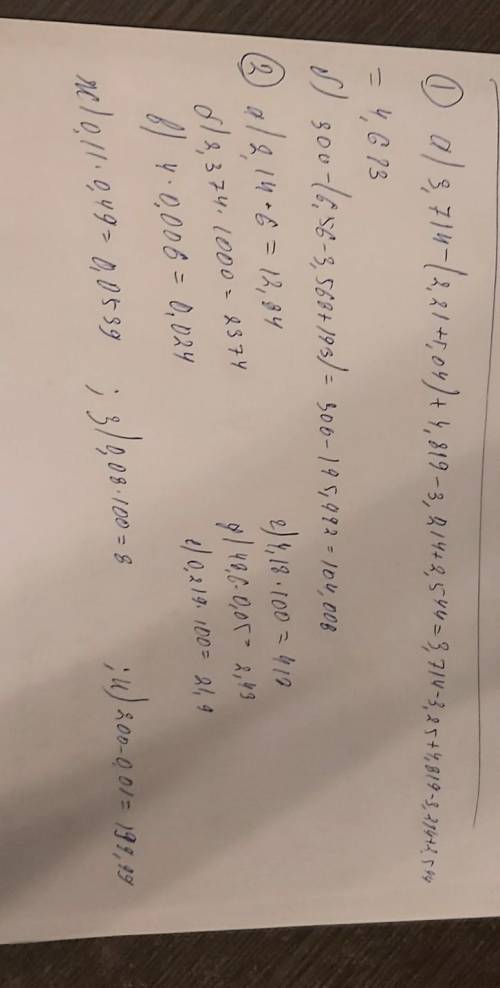 ① а) 3,714-(2,21+5,04)+4,819-3,214+2,544=3,714-3,25+4,819-3,214+2,544
= 4,623
б) 300-(6,56-3,568+193)=300-195,992=104,008
② а) 2,14·6=12,84
б) 2,374·1000=2374
в) 4·0,006=0,024
г) 4,18·100=418
д) 48,6·0,05=2,43
е) 0,219·100=21,9
ж) 0,11·0,49=0,0539 ; з) 0,08·100=8 ; и) 200-0,01=199,99